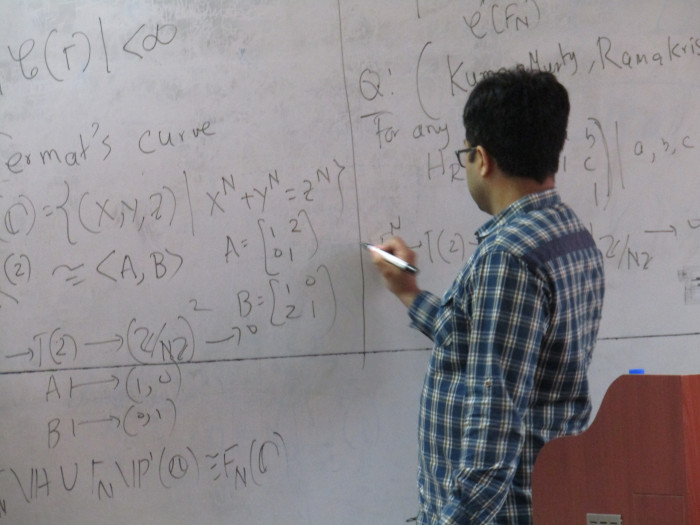 𝒞(Γ)| < ∞
Fermat's curve
(ℂ) = {(X,Y,Z) | X^N + Y^N = Z^N}
(2) ≅ <A, B> A = [1 2
0 1]
B = [1 0
2 1]
→ Γ(2) → (Z/NZ)^2 → 0
A ↦ (1, 0)
B ↦ (0, 1)
\ℍ ∪ Γ_N \ℙ'(ℚ) ≅ F_N(ℂ)
𝒞'(F_N)
Q: (Murty, Ramakris
For any
b
c
1) | a, b, c
Γ(2)
Z/NZ →